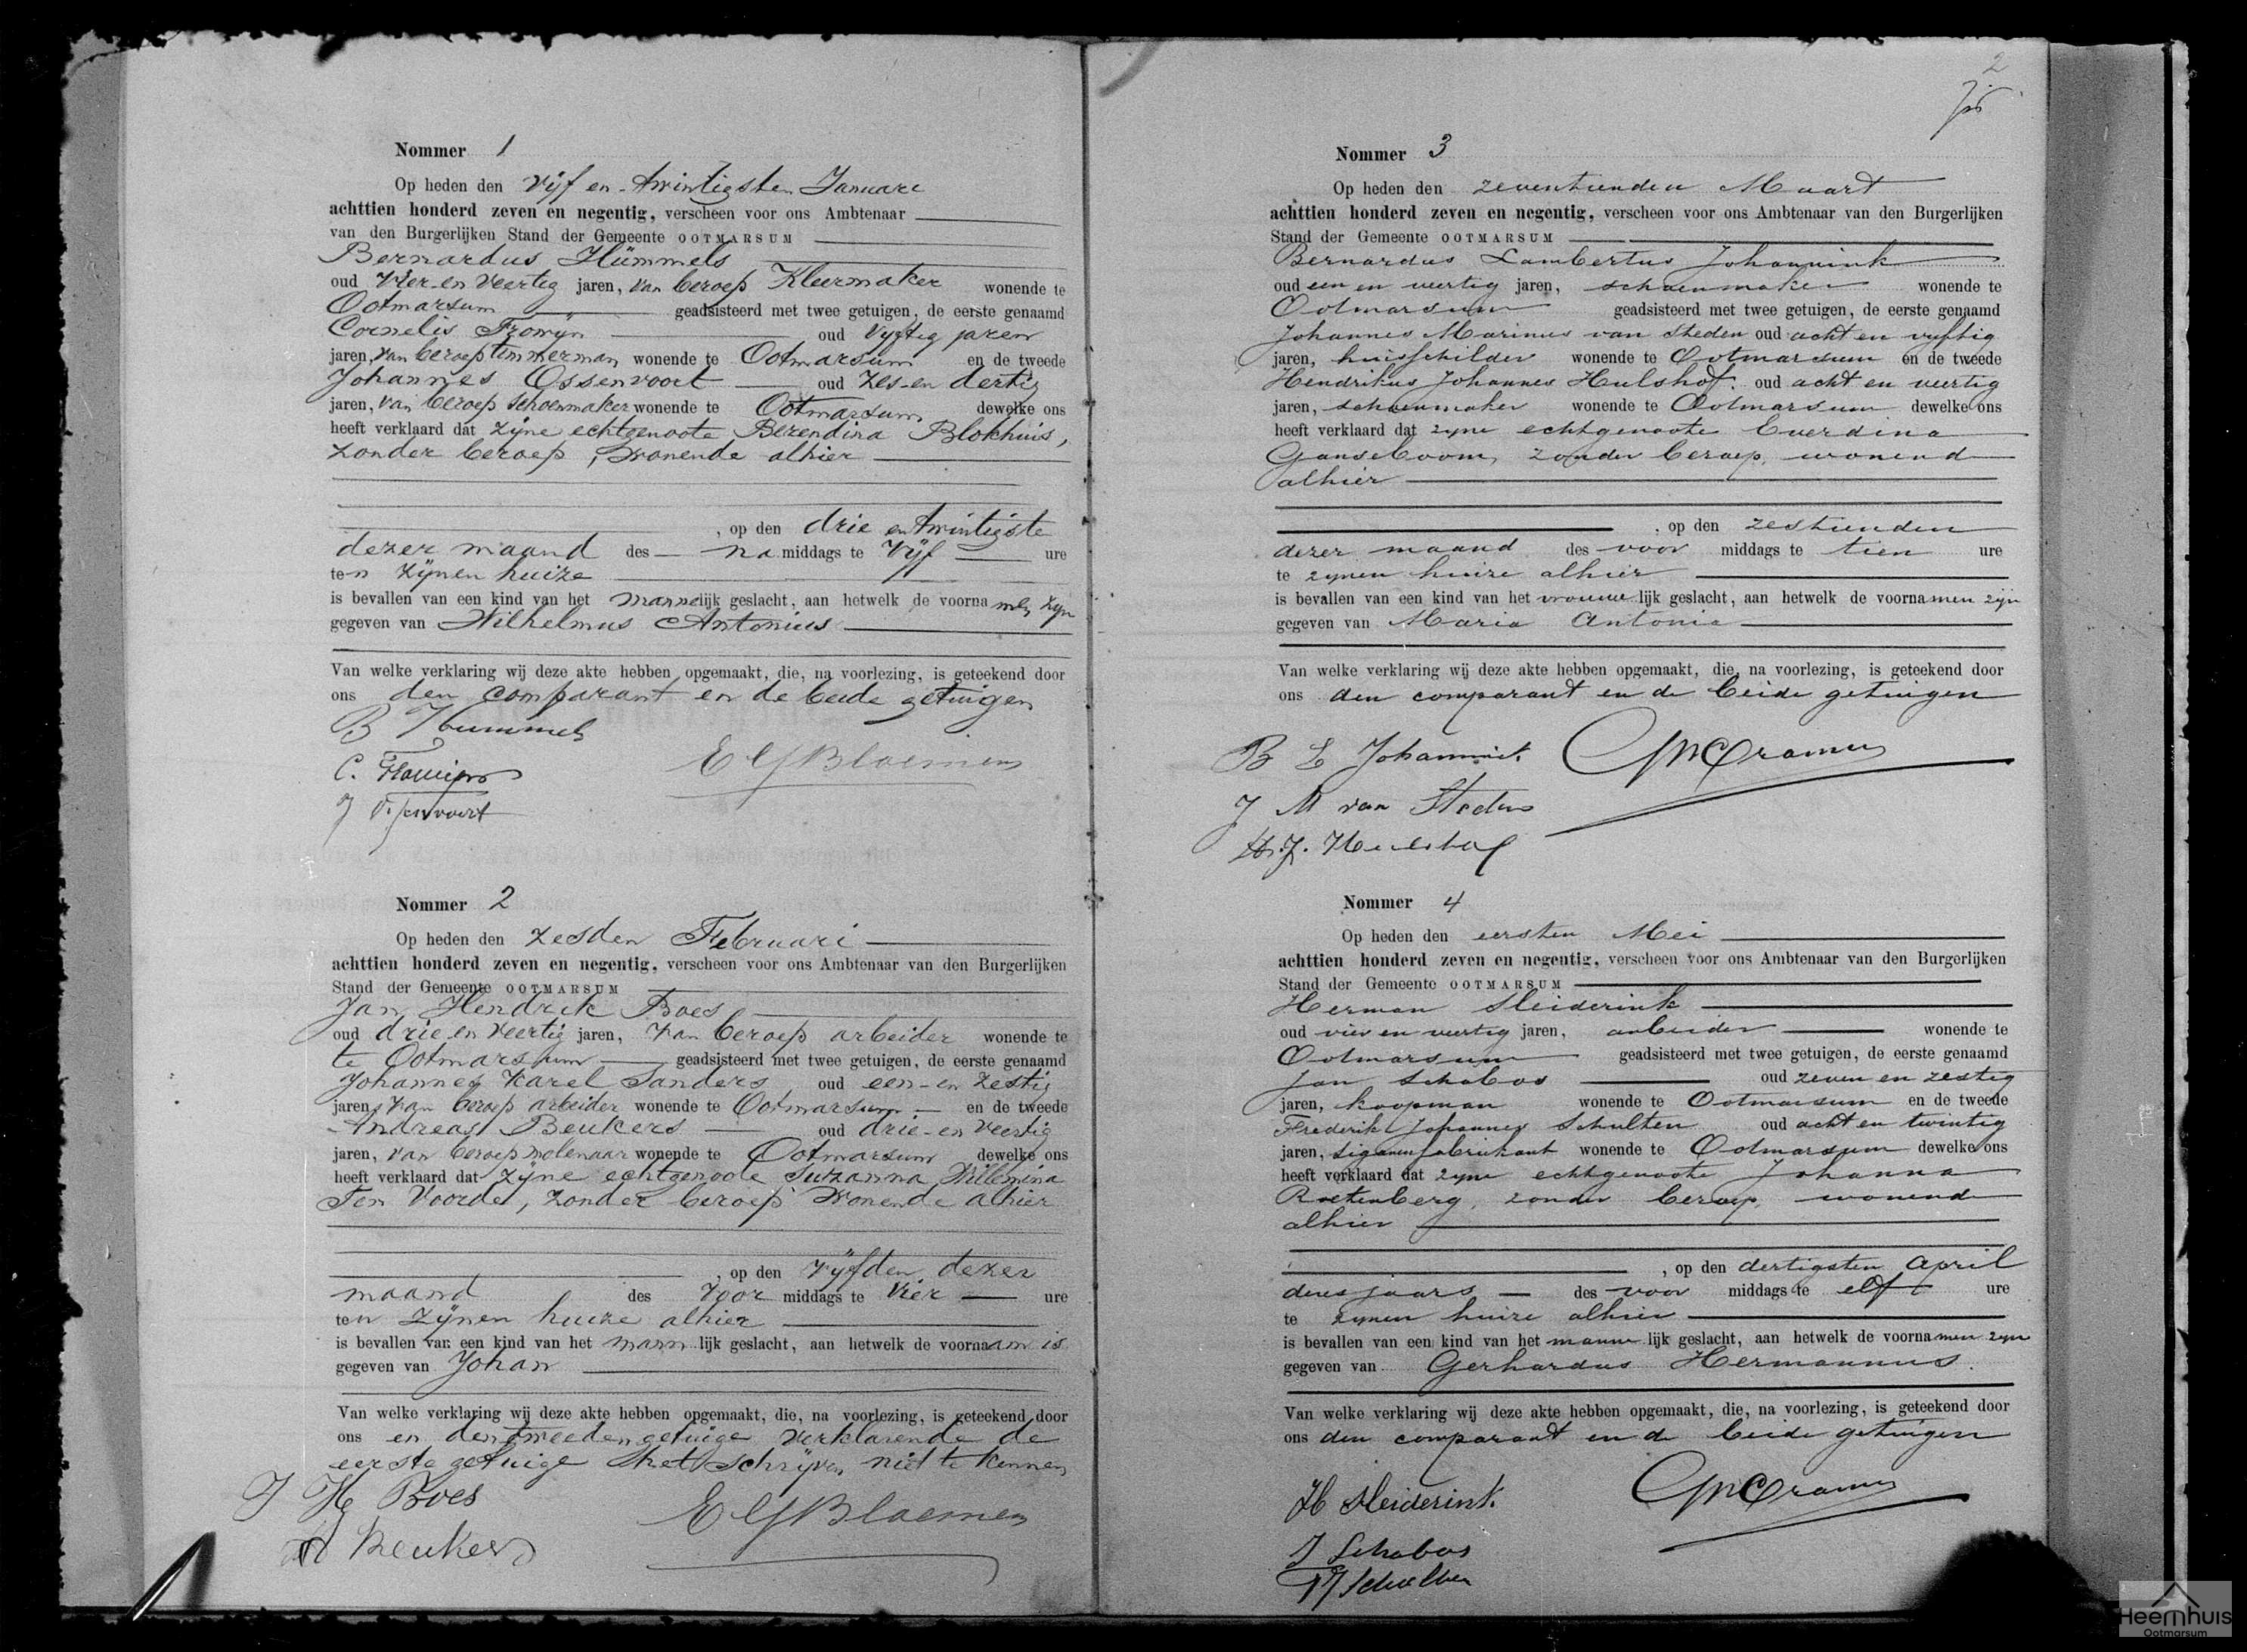 Nommer 1
Op heden den Vijf en twintigsten Januari
achttien honderd zeven en negentig, verscheen voor ons Ambtenaar
van den Burgerlijken Stand der Gemeente OOTMARSUM
Bernardus Hümmels
oud Vier en Veertig jaren, van beroep Kleermaker wonende te
Ootmarsum geadsisteerd met twee getuigen, de eerste genaamd
Cornelis Frowijn oud Vijftig jaren
jaren, van beroep timmerman wonende te Ootmarsum en de tweede
Johannes Ossenvoort oud Zes-en dertig
jaren, van beroep Schoenmaker wonende te Ootmarsum dewelke ons
heeft verklaard dat zijne echtgenoote Berendina Blokhuis,
zonder beroep, wonende alhier
, op den drie en twintigste
dezer maand des na middags te Vijf ure
ten zijnen huize
is bevallen van een kind van het mannelijk geslacht, aan hetwelk de voornamen zijn
gegeven van Wilhelmus Antonius
Van welke verklaring wij deze akte hebben opgemaakt, die, na voorlezing, is geteekend door
ons den comparant en de beide getuigen
B Hummels
C. Frowijn
E G Bloemen
J Ossenvoort
Nommer 2
Op heden den zesden Februari
achttien honderd zeven en negentig, verscheen voor ons Ambtenaar van den Burgerlijken
Stand der Gemeente OOTMARSUM
Jan Hendrik Boes
oud drie en Veertig jaren, van beroep arbeider wonende te
te Ootmarsum geadsisteerd met twee getuigen, de eerste genaamd
Johannes Karel Sanders oud een-en zestig
jaren, van beroep arbeider wonende te Ootmarsum en de tweede
Andreas Beukers oud drie-en Veertig
jaren, van beroep molenaar wonende te Ootmarsum dewelke ons
heeft verklaard dat zijne echtgenoote Suzanna Willemina
Ten Voorde, zonder beroep wonende alhier
, op den vijfden dezer
maand des Voor middags te Vier ure
ten zijnen huize alhier
is bevallen van een kind van het mannlijk geslacht, aan hetwelk de voornaam is
gegeven van Johan
Van welke verklaring wij deze akte hebben opgemaakt, die, na voorlezing, is geteekend door
ons en den tweeden getuige verklarende de
eerste getuige het Schrijven niet te kennen
J H Boes
E G Bloemen
A Beukers
2
Nommer 3
Op heden den zeventienden Maart
achttien honderd zeven en negentig, verscheen voor ons Ambtenaar van den Burgerlijken
Stand der Gemeente OOTMARSUM
Bernardus Lambertus Johannink
oud een en veertig jaren, schoenmaker wonende te
Ootmarsum geadsisteerd met twee getuigen, de eerste genaamd
Johannes Marinus van Steden oud acht en vijftig
jaren, huisschilder wonende te Ootmarsum en de tweede
Hendrikus Johannes Hulshof. oud acht en veertig
jaren, schoenmaker wonende te Ootmarsum dewelke ons
heeft verklaard dat zijne echtgenoote Everdina
Ganseboom, zonder beroep, wonend
alhier
, op den zestienden
dezer maand des voor middags te tien ure
te zijnen huize alhier
is bevallen van een kind van het vrouwelijk geslacht, aan hetwelk de voornamen zijn
gegeven van Maria Antonia
Van welke verklaring wij deze akte hebben opgemaakt, die, na voorlezing, is geteekend door
ons den comparant en de beide getuigen
B L Johannink Cramer
J M van Steden
H. J. Hulshof
Nommer 4
Op heden den eersten Mei
achttien honderd zeven en negentig, verscheen voor ons Ambtenaar van den Burgerlijken
Stand der Gemeente OOTMARSUM
Herman Sleiderink
oud vier en veertig jaren, arbeider wonende te
Ootmarsum geadsisteerd met twee getuigen, de eerste genaamd
Jan Schabos oud zeven en zestig
jaren, koopman wonende te Ootmarsum en de tweede
Frederik Johannes Schulten oud acht en twintig
jaren, sigarenfabrikant wonende te Ootmarsum dewelke ons
heeft verklaard dat zijne echtgenoote Johanna
Rotenberg, zonder beroep, wonend
alhier
, op den dertigsten April
dezes jaars des voor middags te elf ure
te zijnen huize alhier
is bevallen van een kind van het mannelijk geslacht, aan hetwelk de voornamen zijn
gegeven van Gerhardus Hermannus.
Van welke verklaring wij deze akte hebben opgemaakt, die, na voorlezing, is geteekend door
ons den comparant en de beide getuigen
H Sleiderink. Cramer
J Schabos
FJ Schulten
Heemhuis
Ootmarsum